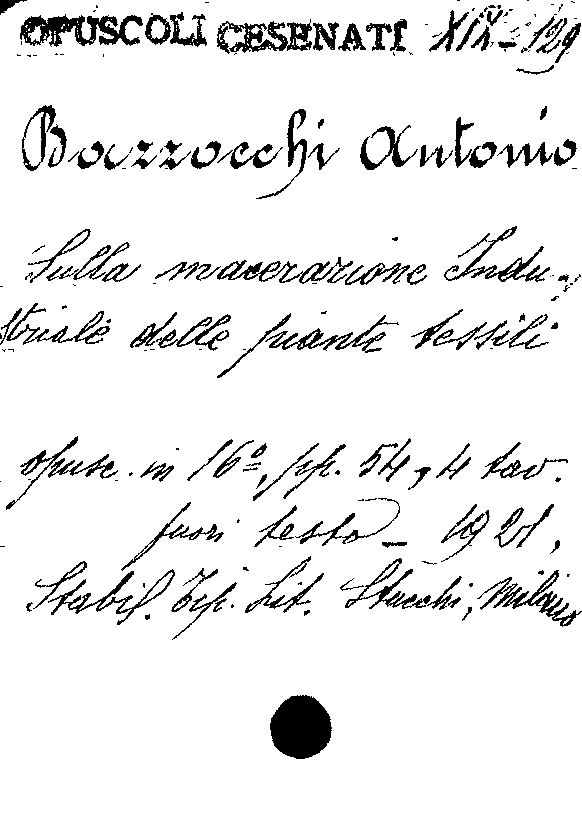 OPUSCOLI CESENATI XIX-129
Bazzocchi Antonio
Sulla macerazione Indu-
striale delle piante tessili
opusc. in 16º, pp. 54, 4 tav.
fuori testo - 1921,
Stabil. Tip. Lit. Stucchi, Milano